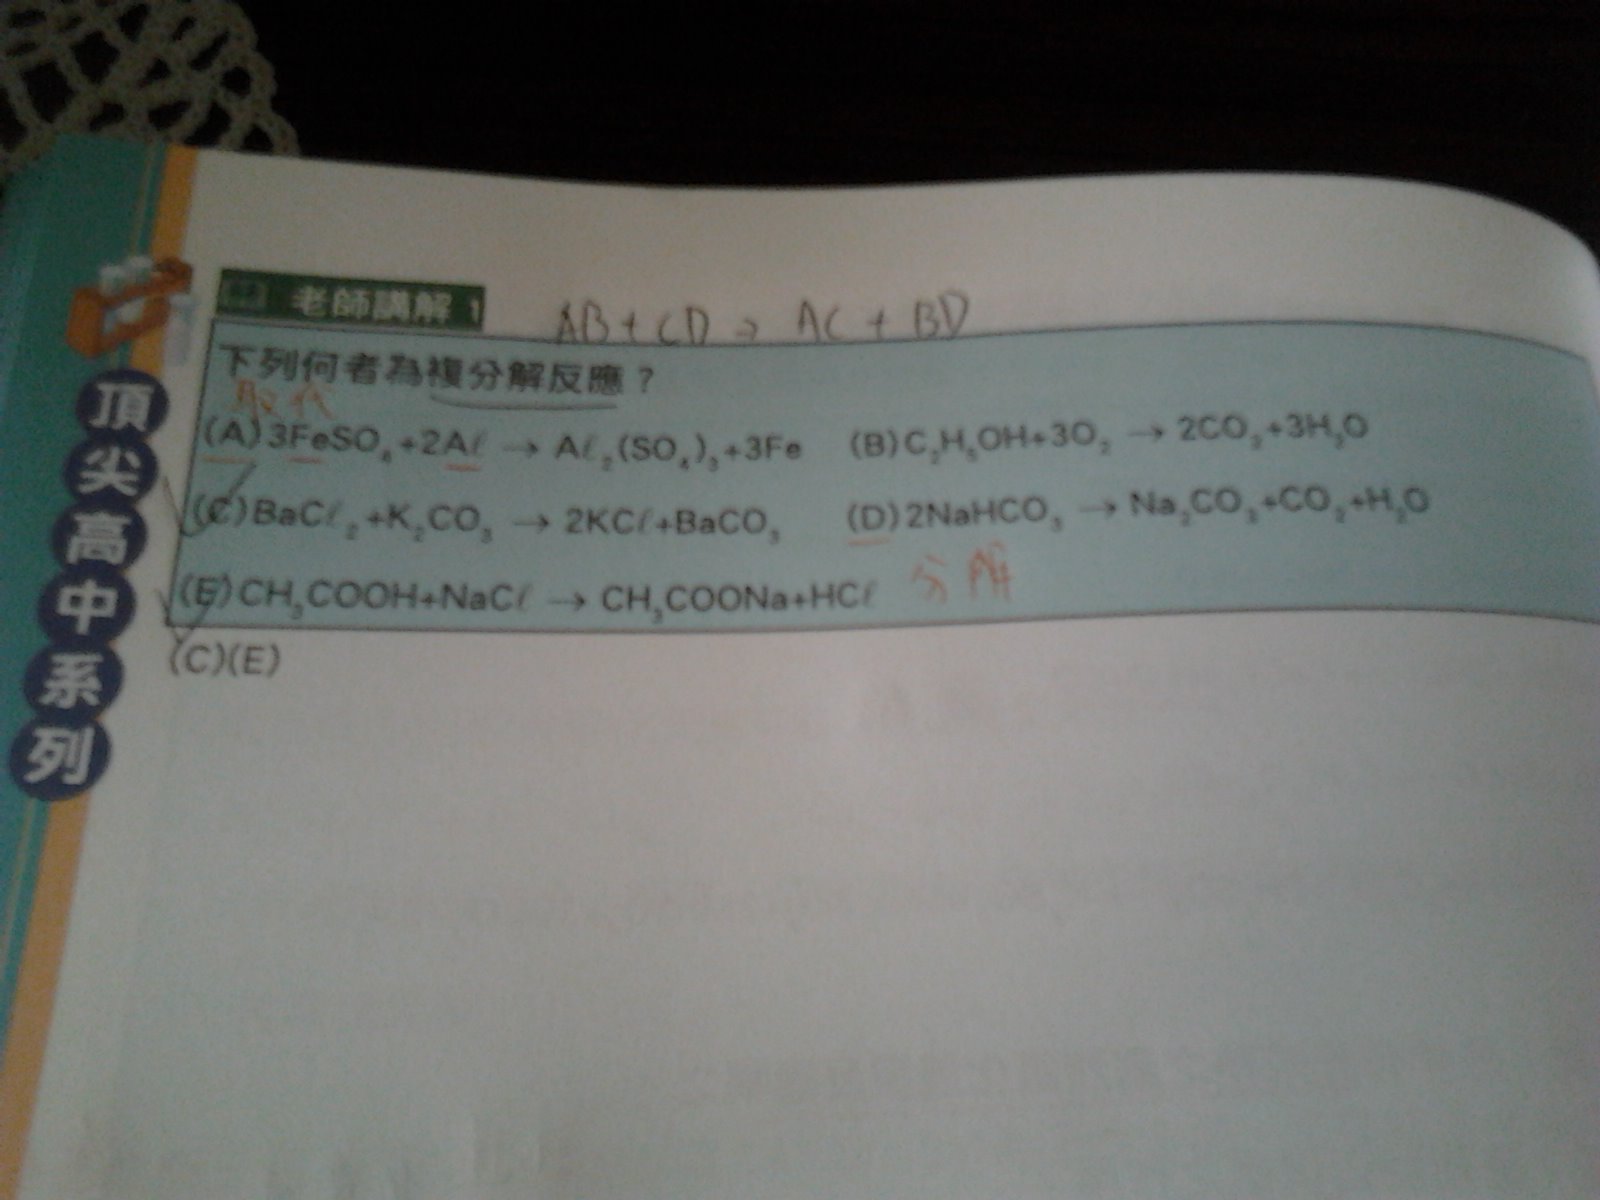 老師講解 1
AB + CD → AC + BD
下列何者為複分解反應？
取代
(A)3FeSO₄+2Aℓ → Aℓ₂(SO₄)₃+3Fe (B)C₂H₅OH+3O₂ → 2CO₂+3H₂O
(C)BaCℓ₂+K₂CO₃ → 2KCℓ+BaCO₃ (D)2NaHCO₃ → Na₂CO₃+CO₂+H₂O
分解
(E)CH₃COOH+NaCℓ → CH₃COONa+HCℓ
(C)(E)
頂尖高中系列